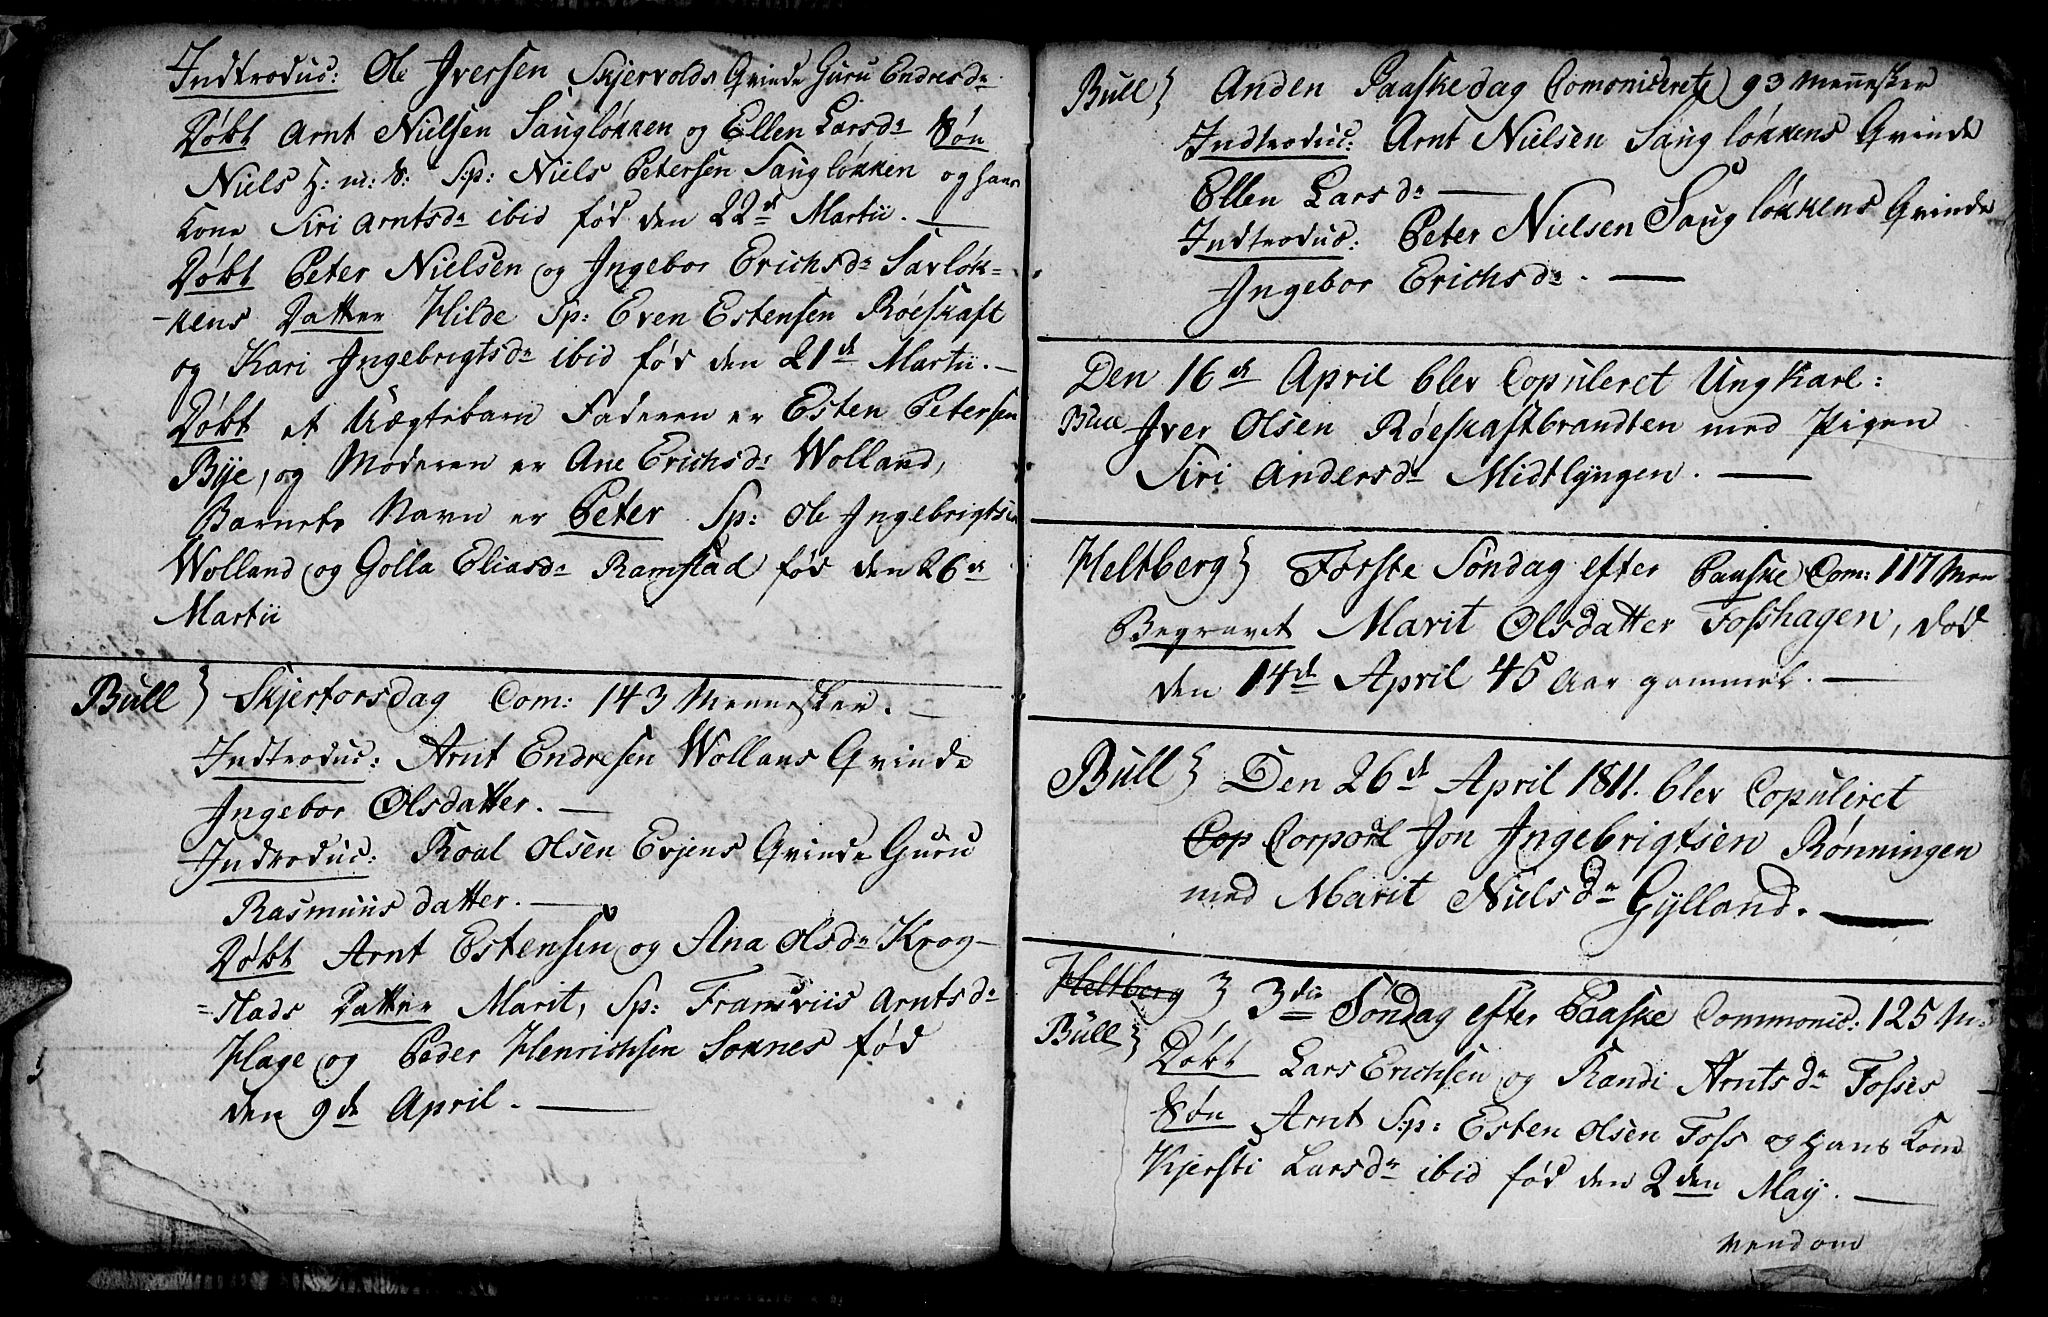 Indtroduc: Ole Iversen Skjervolds Qvinde Guru Endresdr
Døbt Arnt Nielsen Saugløkken og Ellen Larsdr Søn
Niels H: m: S: Sp: Niels Petersen Saugløkken og hans
Kone Siri Arntsdr ibid fød den 22de Martii. —
Døbt Peter Nielsen og Ingebor Erichsdr Savløk-
-kens Datter Hilde Sp: Even Estensen Røeskaft
og Kari Ingebrigtsdr ibid fød den 21de Martii. —
Døbt et Uægtebarn Faderen er Esten Petersen
Bye, og Moderen er Ane Erichsdr Wolland,
Barnets Navn er Peter Sp: Ole Ingebrigtsen
Wolland og Golla Eliasdr Ramstad fød den 26de
Martii
Bull } Skjertorsdag Com: 143 Mennesker. —
Indtroduc: Arnt Endresen Wollans Qvinde
Ingebor Olsdatter. —
Indroduc: Roal Olsen Evjens Qvinde Guru
Rasmuus datter. —
Døbt Arnt Estensen og Ana Olsdr Krog-
=stads Datter Marit, Sp: Arntsdr
Hage og Peder Henrichsen Soknes fød
den 9de April. —
Bull } Anden Paaskedag Comonicerete 93 Mennesker
Indtroduc: Arnt Nielsen Saugløkkens Qvinde
Ellen Larsdr —
Indtroduc: Peter Nielsen Saugløkkens Qvinde
Ingebor Erichsdr. —
Den 16de April blev Copuleret Ungkarl:
Bull Iver Olsen Røeskaftbrandten med Pigen
Siri Andersdr Midtlyngen. —
Heltberg } Første Søndag efter Paaske Com: 117 Men
Begravet Marit Olsdatter Fosshagen, død
den 14de April 45 Aar gammel. —
Bull } Den 26de April 1811. blev Copuleret
Cop Corporal Jon Ingebrigtsen Rønningen
med Marit Nielsdr Gylland. —
Heltberg } 3die Søndag efter Paaske Commonic: 125 M:
Bull } Døbt Lars Erichsen og Randi Arntsdr Fosses
Søn Arnt Sp: Esten Olsen Foss og Hans Kone
Kjersti Larsdr ibid fød den 2den May. —
vend om